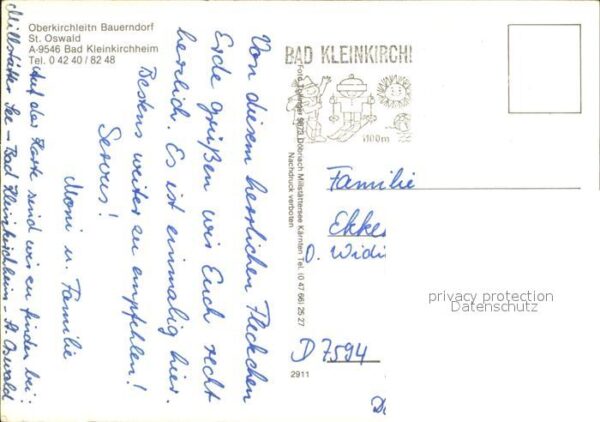 Oberkirchleitn Bauerndorf
St. Oswald
A-9546 Bad Kleinkirchheim
Tel. 0 42 40 / 82 48
Von diesem herrlichen Fleckchen
Erde grüßen wir Euch recht
herzlich. Es ist einmalig hier.
Bestens weiter zu empfehlen!
Servus!
Moni u. Familie
Auf der Karte sind wir zu finden bei:
Millstätter See – Bad Kleinkirchheim – St. Oswald
BAD KLEINKIRCH
1100m
9873 Döbriach Millstättersee Kärnten Tel. (0 47 66) 25 27
Nachdruck verboten
Familie
Ekke
O. Widi
D 7594
2911
privacy protection
Datenschutz